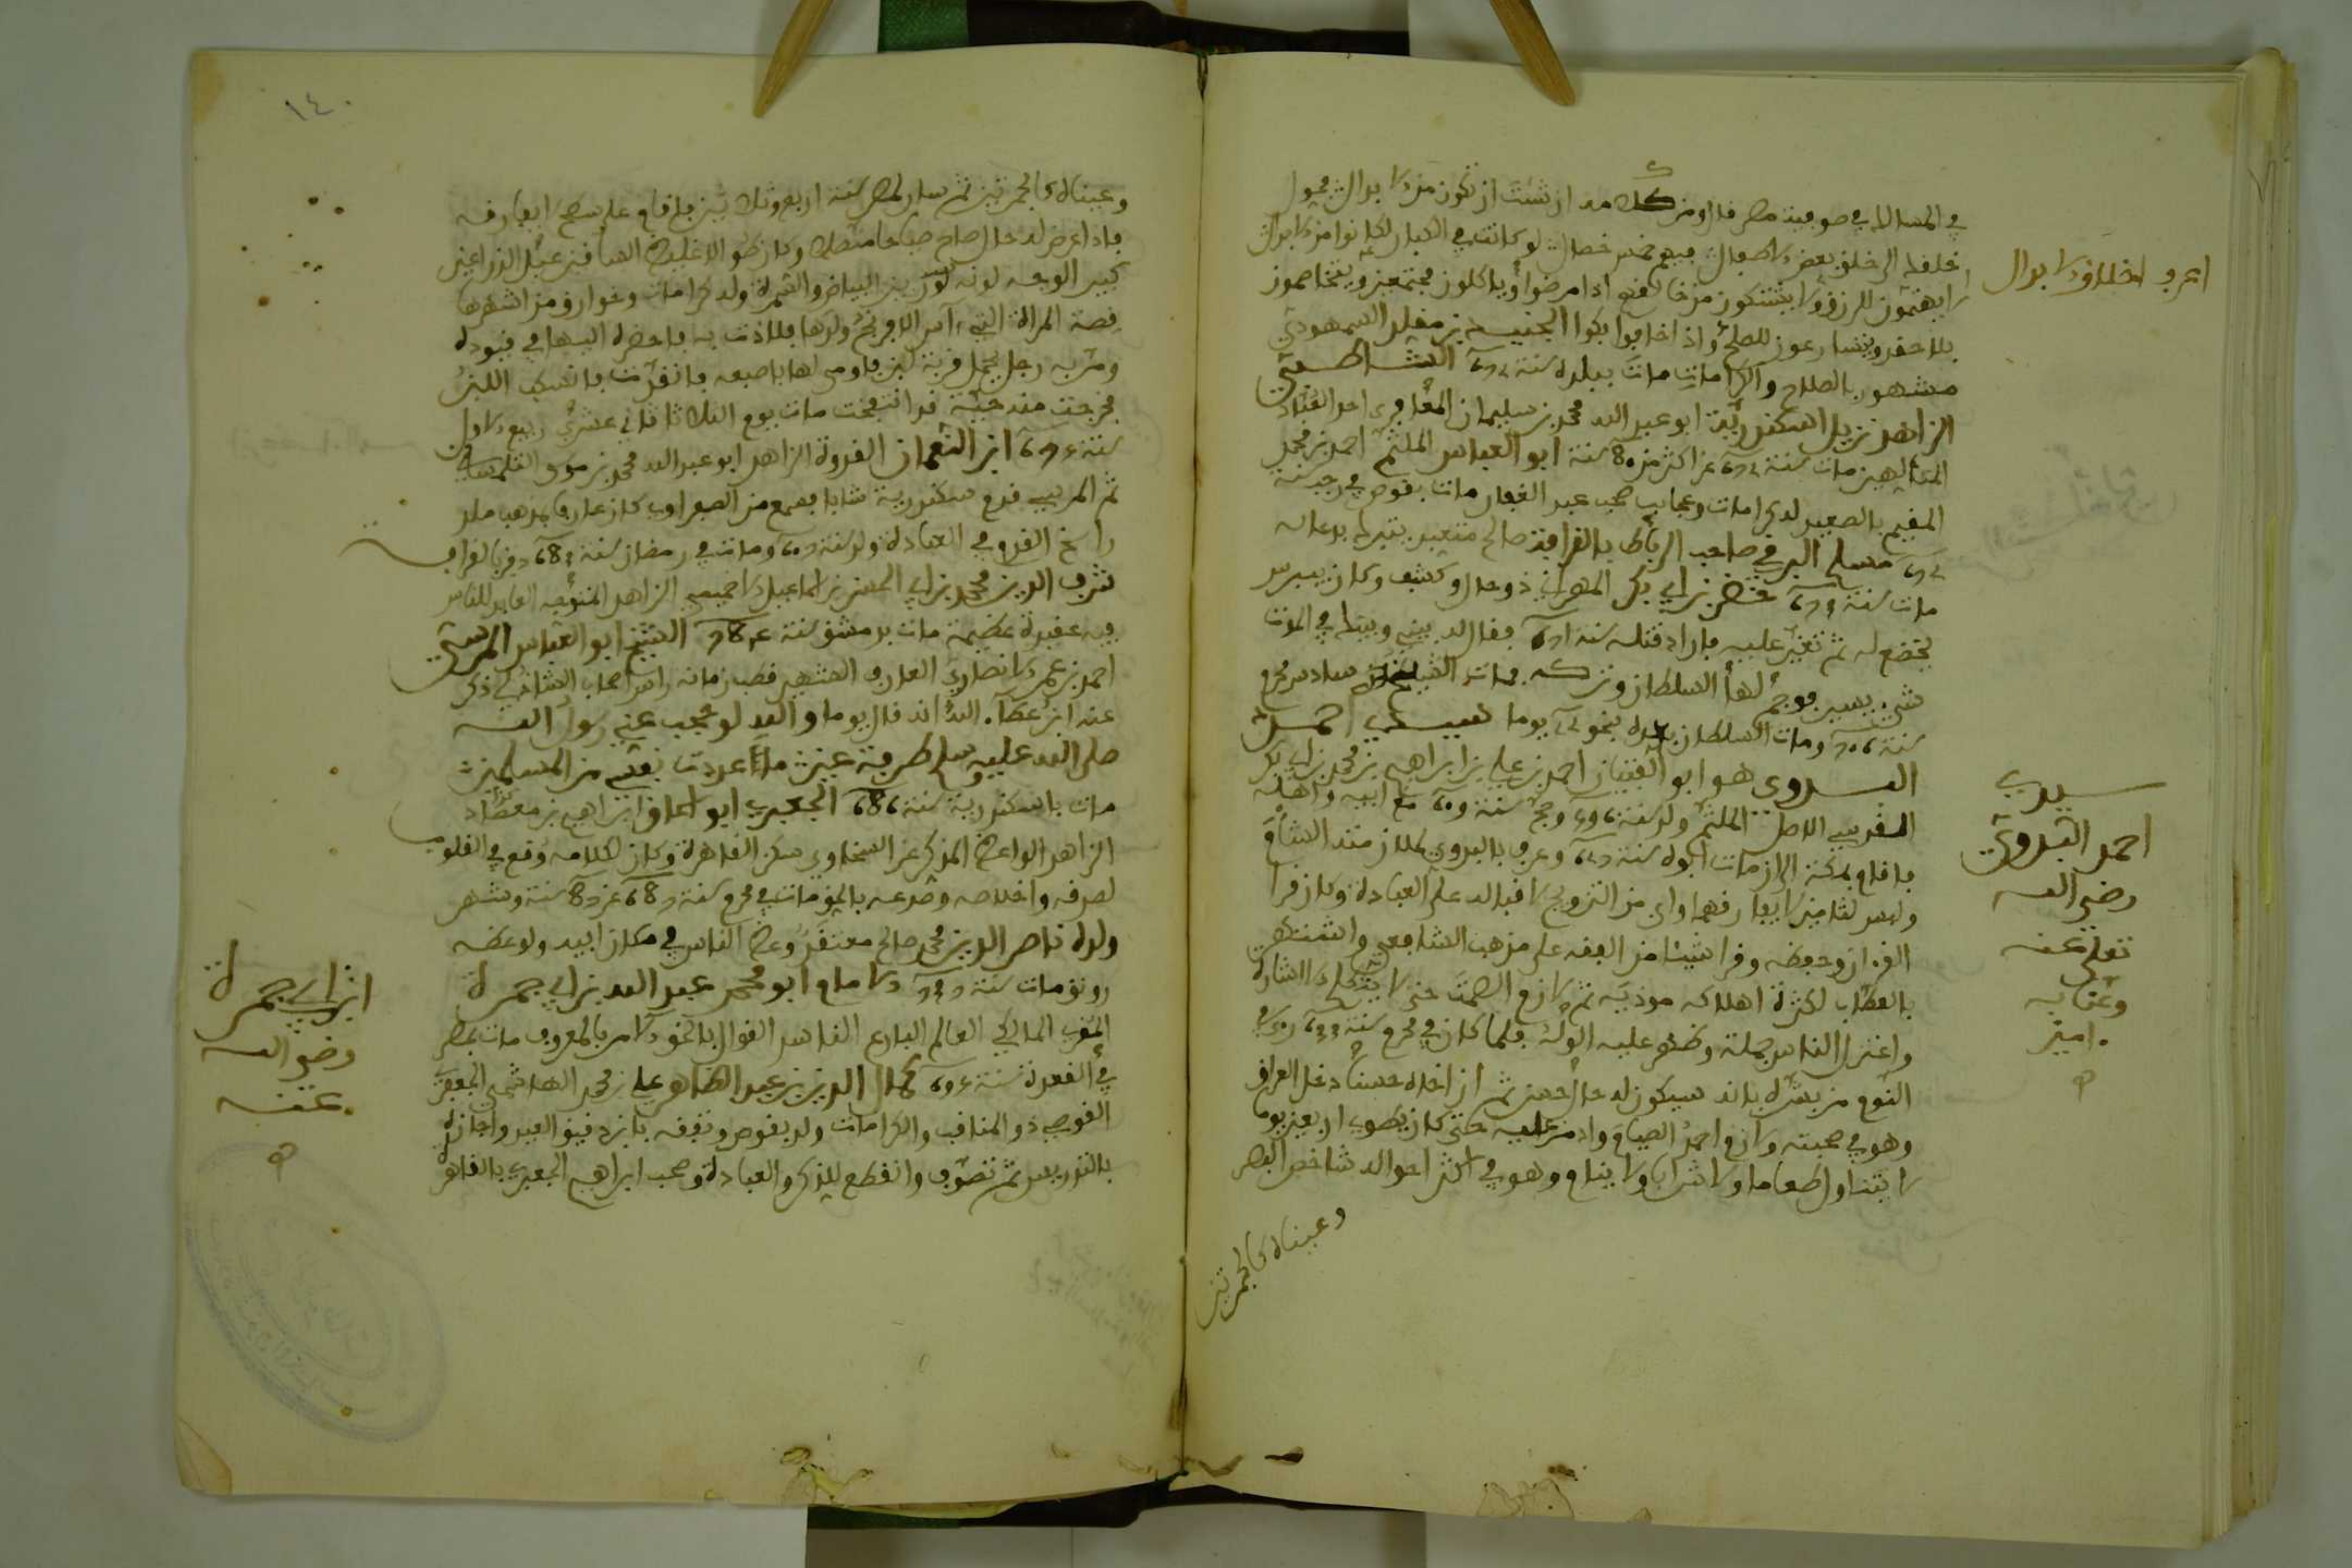 في المسالك في صوفية مصر قال ومن كلامه ان شئت ان تكون من الابدال فحول
خلقك الى خلق بعض الاطفال ففيهم خمس خصال لو كانت في الكبار لكانوا من الابدال
لا يهتمون للرزق ولا يشتكون من خالقهم اذا مرضوا وياكلون مجتمعين ويتخاصمون
بلا حقد ويتسارعون للصلح واذا خافوا بكوا الجنيد بن مقلد السمهودي
مشهور بالصلاح والكرامات مات ببلده سنة الشاطبي
الزاهد نزيل اسكندرية ابو عبد الله محمد بن سليمان المعافري احد العباد
مات سنة عن اكثر من 80 سنة ابو العباس الملثم احمد بن محمد
المقيم بالصعيد له كرامات وعجايب صحب عبد الغفار مات بقوص في رجب سنة
مسلم البرقي صاحب الرباط بالقرافة صالح متعبد يتبرك بدعائه
مات سنة خضر بن ابي بكر المهراني ذو حال وكشف وكان بيبرس
يخضع له ثم تغير عليه فاراد قتله سنة فقال له بيني وبينك في الموت
شيء يسير فوجم لها السلطان وتركه فمات الشيخ سادس محرم
سنة ومات السلطان بعده بنحو يوما سيدي احمد
البدوي هو ابو الفتيان احمد بن علي بن ابراهيم بن محمد بن ابي بكر
الملثم ولد سنة وحج سنة مع ابيه واهله
فاقام بمكة الى ان مات ابوه سنة وعرف بالبدوي لملازمته اللثام
ولبس لثامين لا يفارقهما وابى من التزويج لاقباله على العبادة وكان قرا
القران وحفظه وقرا شيئا من الفقه على مذهب الشافعي واشتهر
بالعطاب لكثرة اهلاكه موذيه ثم لازم الصمت حتى لا يتكلم الا اشارة
واعتزل الناس جملة وظهر عليه الوله فلما كان في محرم سنة راى في
النوم من بشره بانه سيكون له حال حسن ثم ان اخاه حسنا دخل العراق
وهو في صحبته ولازم احمد الصيام وادمن عليه حتى كان يطوي اربعين يوما
لا يتناول طعاما ولا شرابا ولا ينام وهو في اكثر احواله شاخص البصر
وعيناه كالجمرتين
اعرف اخلاق الابدال
سيدي
احمد البدوي
رضي الله
تعلى عنه
وعنا به
امين
١٤٠
وعيناه كالجمرتين ثم سار لمصر سنة اربع وثلاثين فاقام على سطح لا يفارقه
فاذا عرض له حال صاح صياحا متصلا وكان طوالا غليظ الساقين عبل الذراعين
كبير الوجه لونه بين البياض والسمرة وله كرامات وخوارق من اشهرها
قصة المراة التي اسر الافرنج ولدها فلاذت به فاحضره اليها في قيوده
ومر به رجل يحمل قربة لبن فاومى لها باصبعه فانقدت فانسكب اللبن
فخرجت منه حية قد انتفخت مات يوم الثلاثا ثاني عشري ربيع الاول
سنة ابن النعمان القدوة الزاهد ابو عبد الله محمد بن موسى التلمساني
ثم المغربي قدم سكندرية شابا فسمع من الصفراوي كان عارفا بمذهب ملك
راسخ القدم في العبادة ولد سنة ومات في رمضان سنة دفن بالقرافة
شرف الدين محمد بن ابي الحسن بن اسماعيل الاخميمي الزاهد المتوجه العابد للناس
فيه عقيدة عظيمة مات بدمشق سنة الشيخ ابو العباس المرسي
احمد بن عمر الانصاري العارف الشهير قطب زمانه راس اصحاب الشاذلي ذكر
عنه ابن عطاء الله انه قال يوما والله لو حجب عني رسول الله
صلى الله عليه وسلم طرفة عين ما اعددت نفسي من المسلمين
مات باسكندرية سنة 686 الجعبري ابو اسحاق ابراهيم بن معضاد
الزاهد الواعظ المذكر عن السخاوي سكن القاهرة وكان لكلامه وقع في القلوب
لصدقه واخلاصه وصدعه بالحق مات في محرم سنة عن سنة وشهر
ولده ناصر الدين محمد صالح معتقد وعظ الناس في مكان ابيه ولوعظه
رونق مات سنة والامام ابو محمد عبد الله بن ابي جمرة
المغربي المالكي العالم البارع الناسك القوال بالحق الامر بالمعروف مات بمصر
في القعدة سنة كمال الدين بن عبد الظاهر علي بن محمد الهاشمي الجعفري
القوصي ذو المناقب والكرامات ولد بقوص وتفقه بابن دقيق العيد واجازه
بالتدريس ثم تصوف وانقطع للذكر والعبادة وصحب ابراهيم الجعبري بالقاهرة
ابن ابي جمرة
رضي الله
عنه